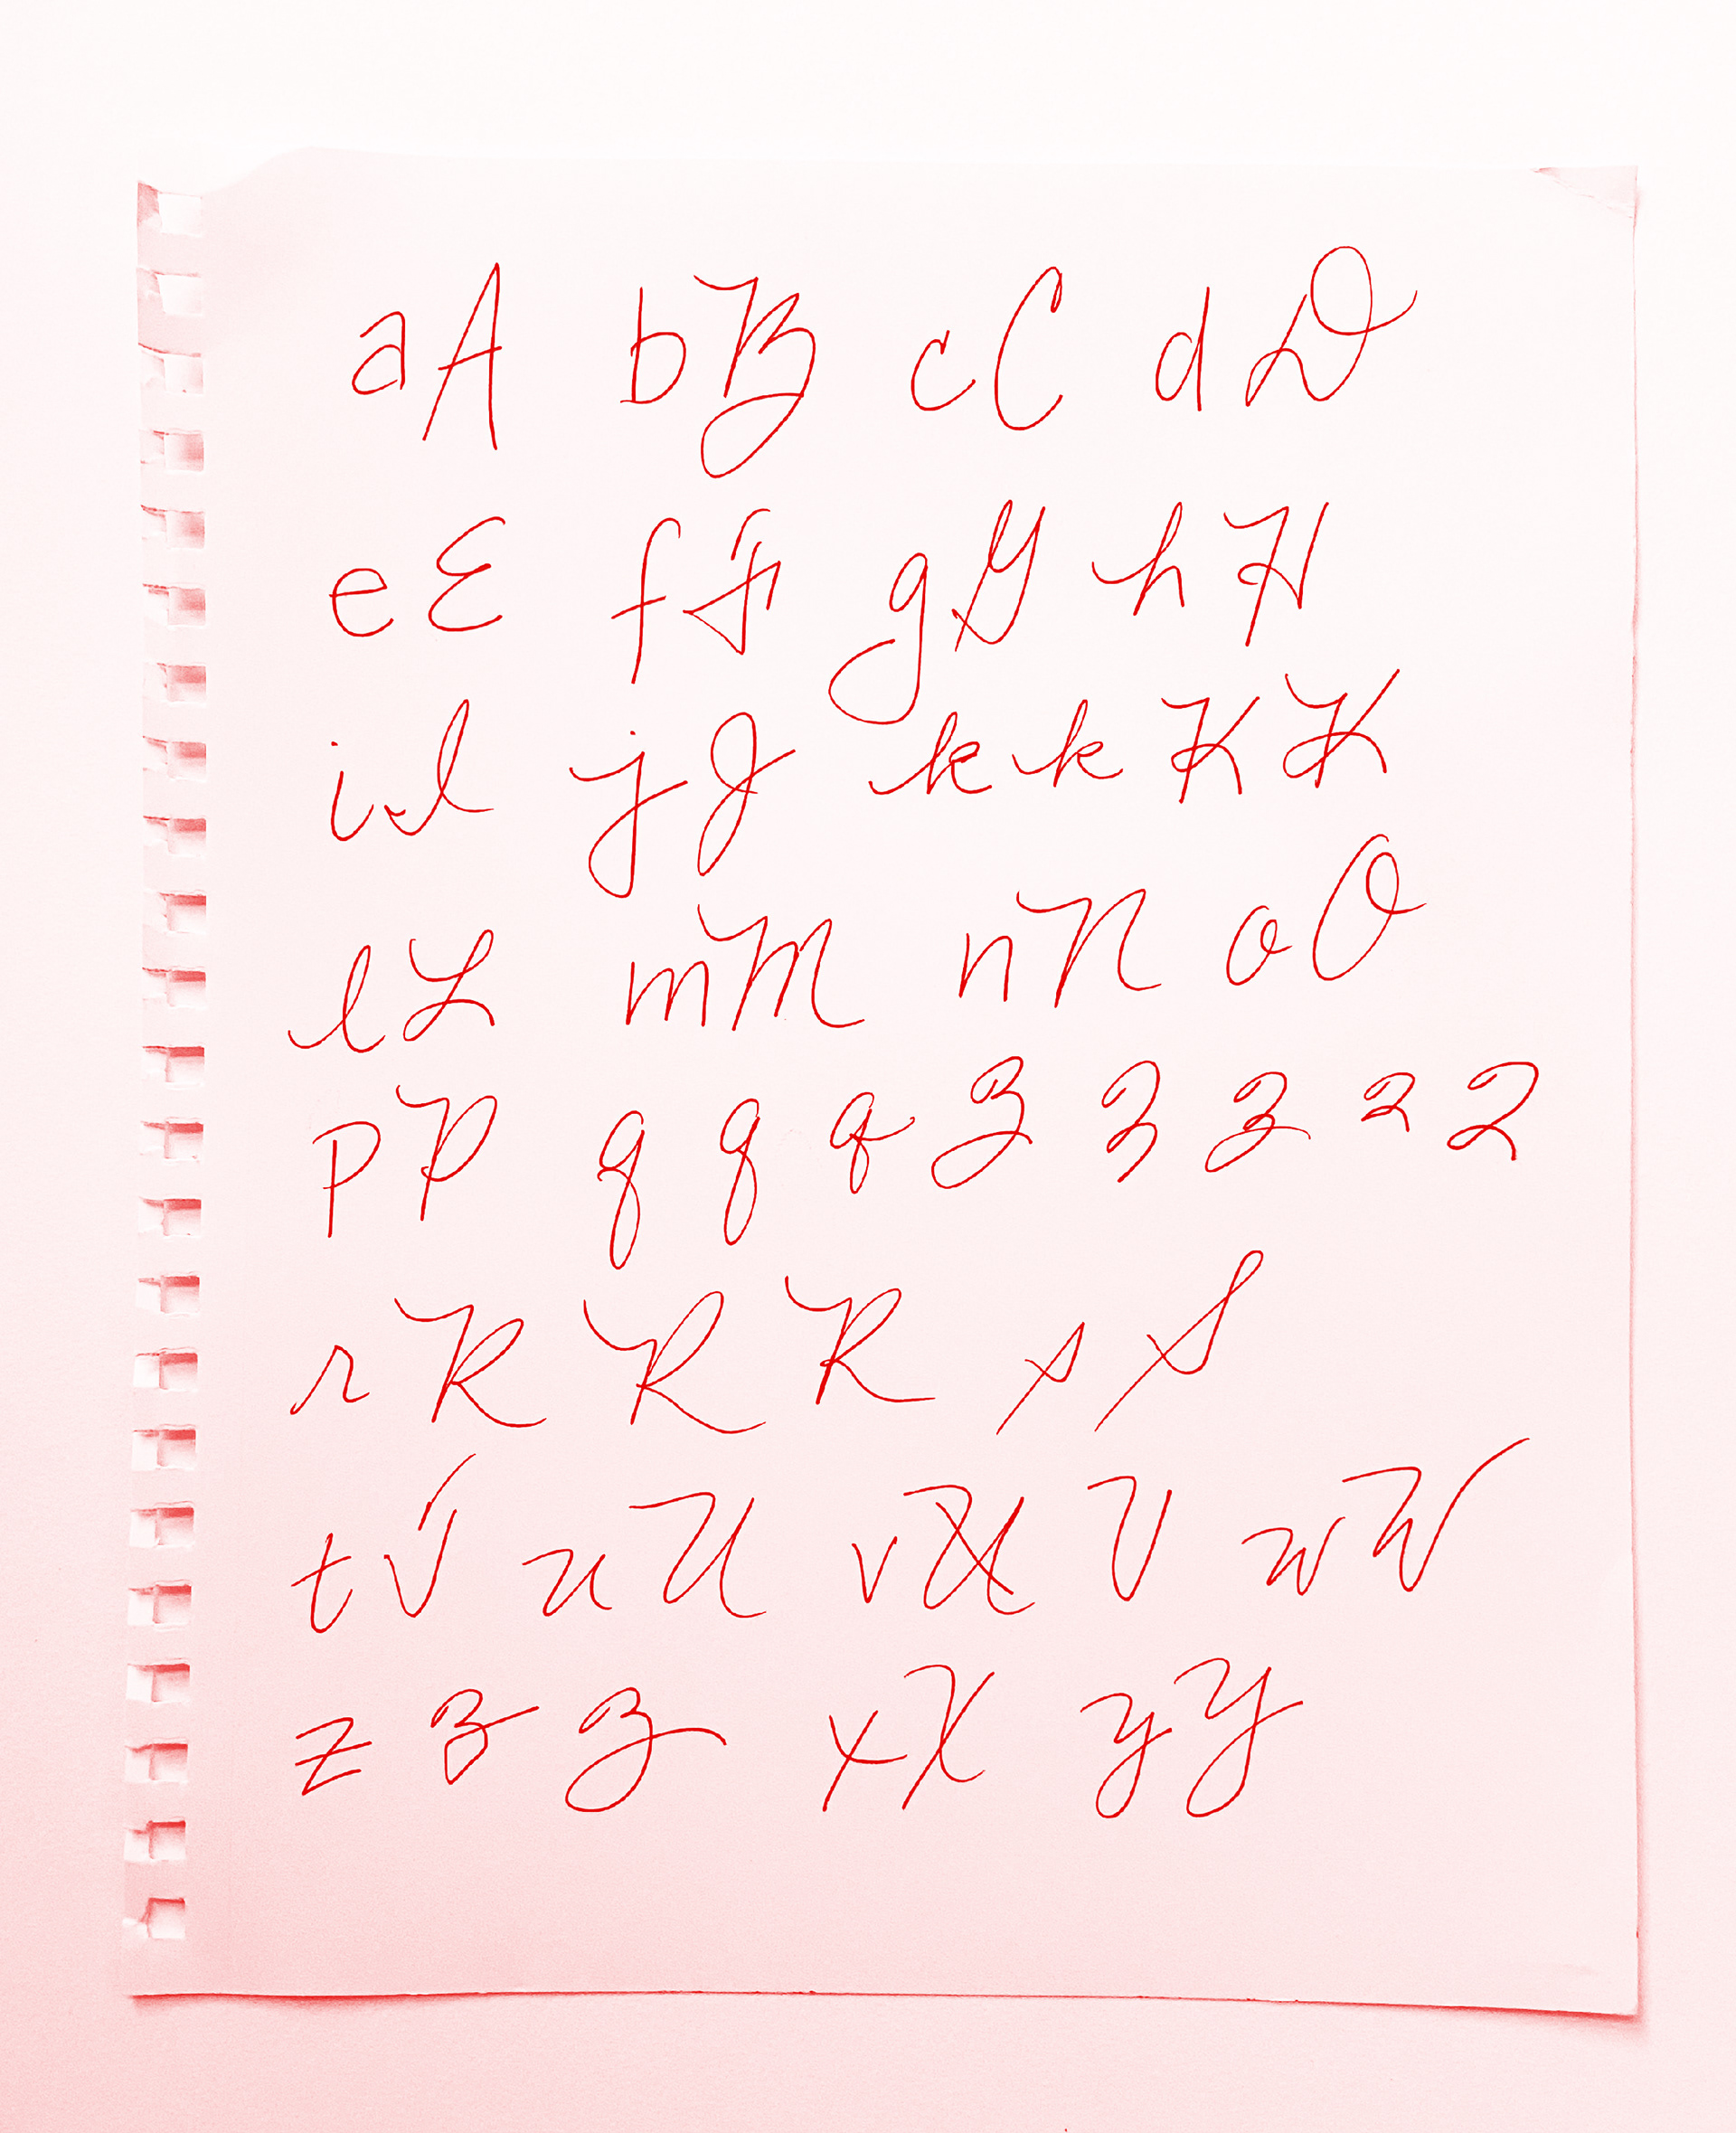 aA bB cC dD
eE fF gG hH
iI jJ kk KK
lL mM nN oO
pP q q q 3 3 3 2 2
rR R R sS
tT uU v V wW
z z z xX yY